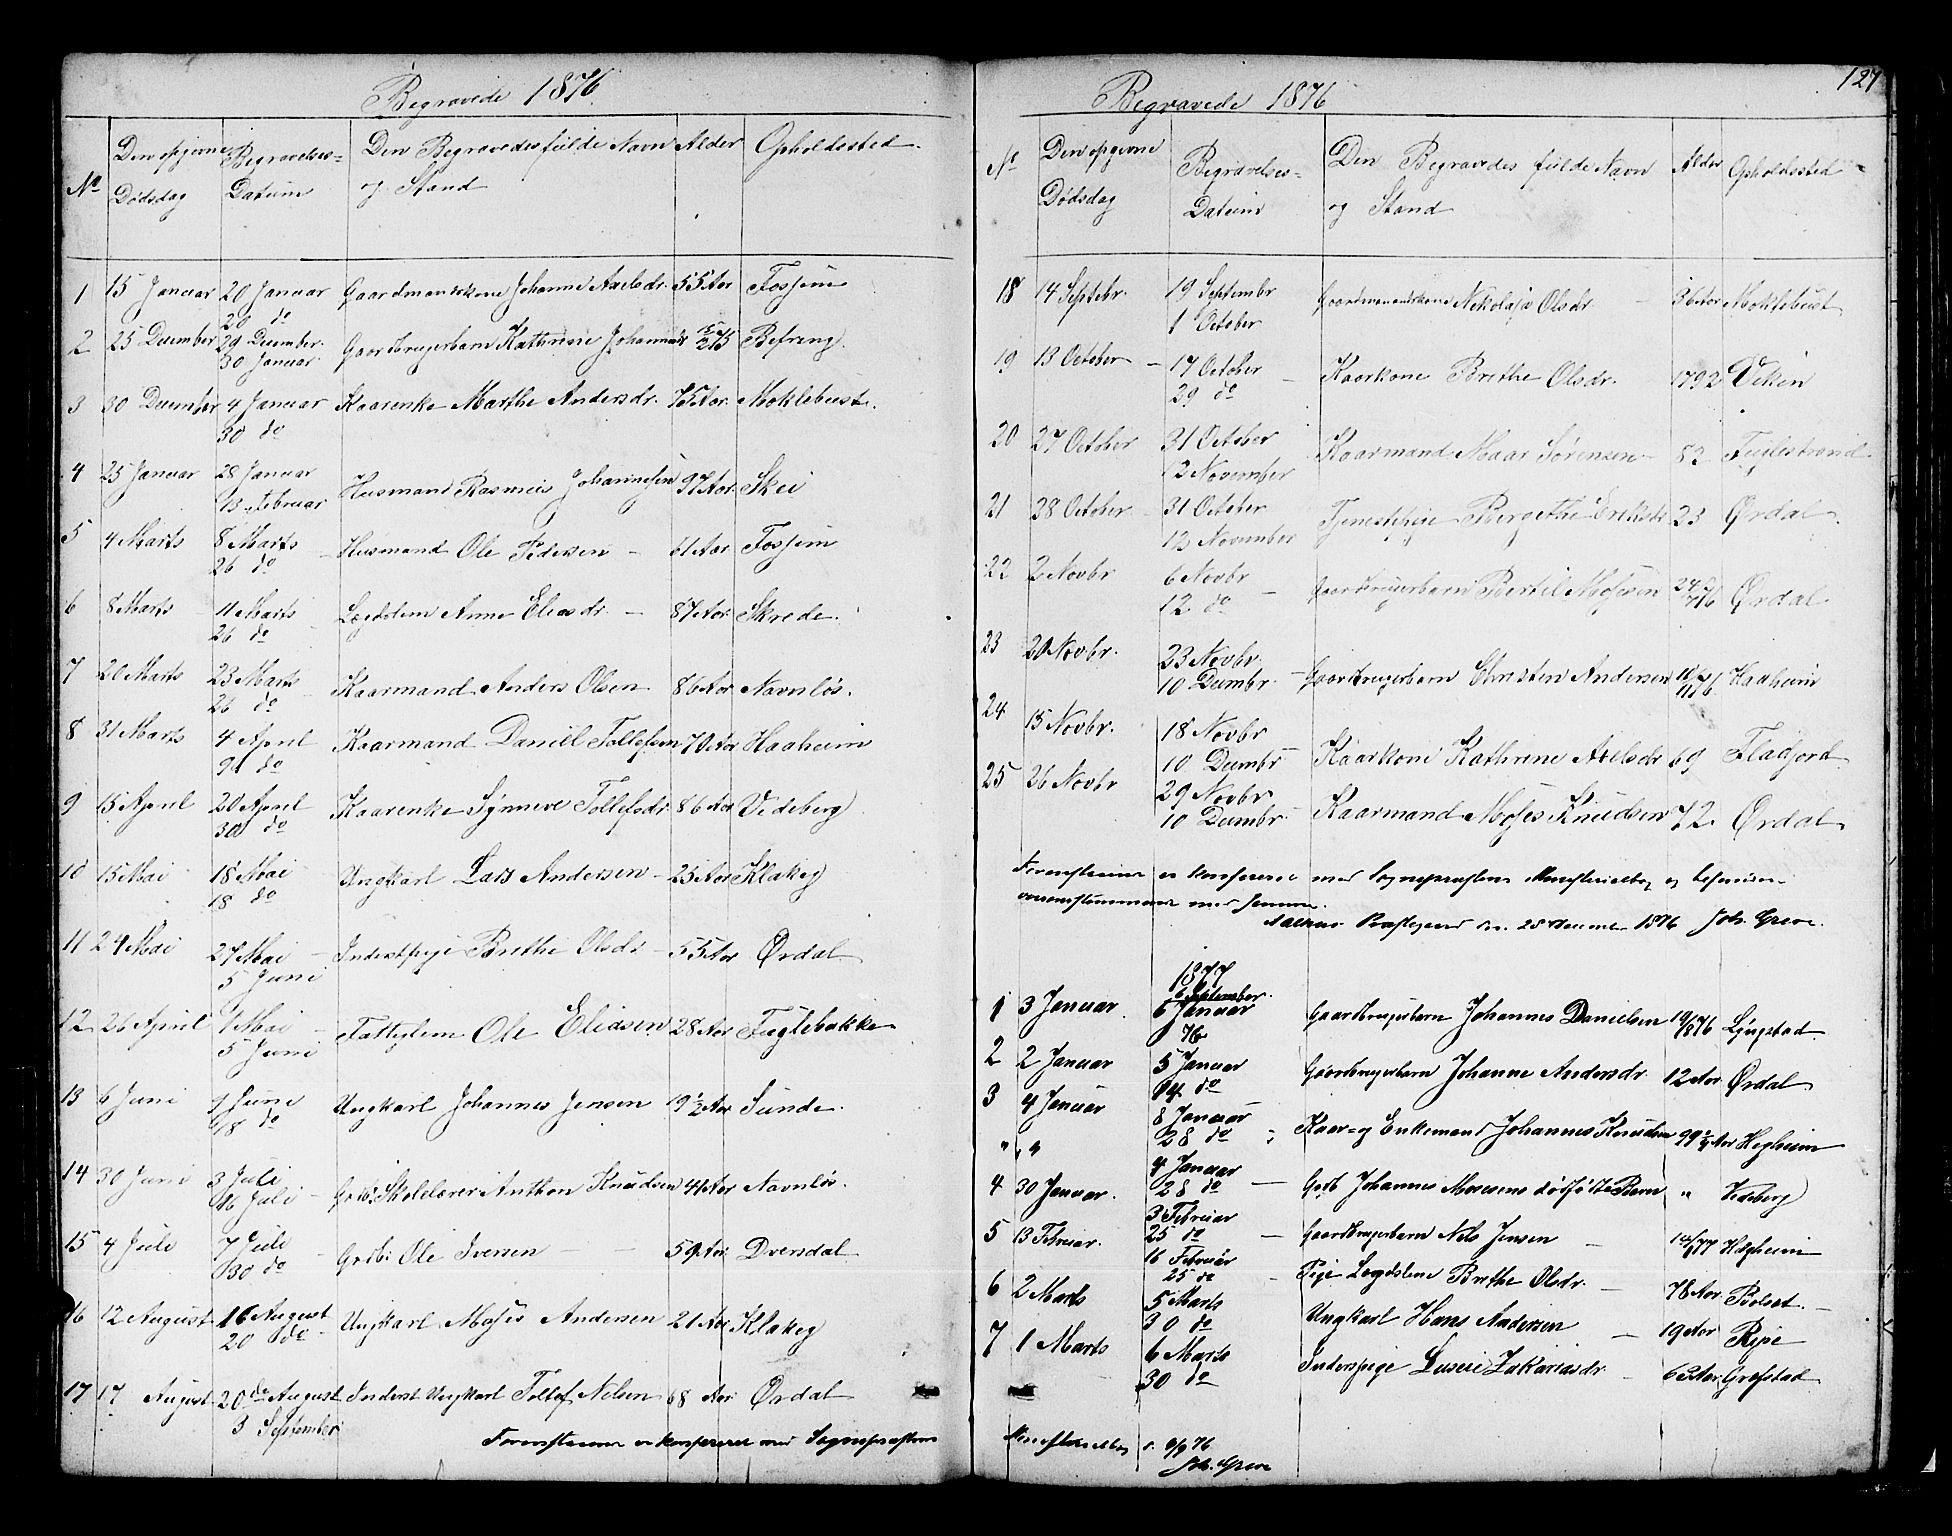 Begravede 1876.
No Den opgivne Dødsdag Begravelses= Datum Den Begravedes fulde Navn og Stand Alder Opholdssted.
1 15 Januar 20 Januar Gaardmandskone Johanne Axelsdr. 55 Aar Fossjem
20 do
2 25 December 29 December Gaardbrugerbarn Kathrine Johannesdr 5/2 75 Befring
30 Januar
3 30 December 4 Januar Kaarenke Marthe Andersdr. 75 Aar. Moklebust.
30 do
4 25 Januar 28 Januar Husmand Rasmus Johannesen 97 Aar. Skei
13 Februar
5 4 Marts 8 Marts Husmand Ole Pedersen 61 Aar Fossjem
26 do
6 8 Marts 11 Marts Lægdslem Anne Eliasdr. 87 Aar. Skrede.
26 do
7 20 Marts 23 Marts Kaarmand Anders Olsen 86 Aar Navnløs.
26 do
8 31 Marts 4 April Kaarmand Daniel Tollefsen 70 Aar Haaheim
do
9 15 April 20 April Kaarenke Synneve Tollefsdr. 86 Aar Vedeberg
30 do
10 15 Mai 18 Mai Ungkarl Lars Andersen 25 Aar Klakeg
18 do
11 24 Mai 27 Mai Inderstpige Brethe Olsdr. 55 Aar Ørdal
5 Juni
12 26 April 1 Mai Fattiglem Ole Eliasen 28 Aar Fuglebakke
5 Juni
13 6 Juni 9 Juni Ungkarl Johannes Jensen 19 1/2 Aar Sunde.
18 do
14 30 Juni 3 Juli Grdb. Skolelærer Anthon Knudsen 41 Aar Navnløs.
16 Juli
15 4 Juli 7 Juli Grdb: Ole Iversen 59 Aar. Dvergsdal
30 do
16 12 August 16 August Ungkarl Moses Andersen 21 Aar Klakeg
20 do
17 17 August 20de August Inderst Ungkarl Tollef Nilsen 68 Aar. Ørdal
3 September
Forenstaaende er konfereret med Sognepræstens
127
Begravede 1876
No Den opgivne Dødsdag Begravelses= Datum Den Begravedes fulde Navn og Stand Alder Opholdssted
18 14 Septebr. 19 Septembr Gaardmandskone Nikolaja Olsdr 36 Aar Moklebust
1 October
19 13 October 17 October Kaarkone Brethe Olsdr. 1792 Viken
29 do
20 27 October 31 October Kaarmand Maar Sørensen 82 Fuglestrand
12 November
21 28 October 31 October Tjenestepige Bergethe Eriksdr 23 Ørdal.
12 November
22 2 Novbr 6 Novbr Gaardbrugerbarn Bertil Mosesen Ørdal
12. do
23 20 Novbr. 23 Novbr. Gaardbrugerbarn Christen Andersen Haaheim
10 Decmbr.
24 15 Novbr. 18 Novbr Kaarkone Kathrine Axelsdr 69 Fladjord
10 Decmbr
25 26 Novbr 29 Novbr Kaarmand Moses Knudsen 72. Ørdal
10 Decmbr.
Forenstaaende er konfereret med Sognepræstens Ministerialbog og befunden
overensstemmende med samme.
Aalhus Præstegaard den 28 December 1876 Joh. Greve.
1877
6 September.
1 3 Januar. 5 Januar Gaardbrugerbarn Johannes Danielsen 19/8 76 Lyngstad
76
2 2 Januar 5 Januar Gaardbrugerbarn Johanne Andersdr. 12 Aar Ørdal
14 do
3 4 Januar 8 Januar Kaar- og Enkemand Johannes Knudsen 99 3/4 Aar Hegheim
28 do
" " 4 Januar
4 30 Januar. 28 do Gbr Johannes Mosesens dødfødte Barn " Vedeberg
3 Februar
5 13 Februar. 25 do Gaardbrugerbarn Nils Jensen Hægheim
16 Februar
25 do Pige Lægdslem Brethe Olsdr. 78 Aar. Bolset.
6 2 Marts 5 Marts
30 do Ungkarl Hans Andersen 19 Aar Ripe
7 1 Marts 6 Marts Inderstpige Lusie Zakariasdr. 62 Aar. Grefstad
30 do
Ministerialbog d. 9/9 76
Joh. Greve